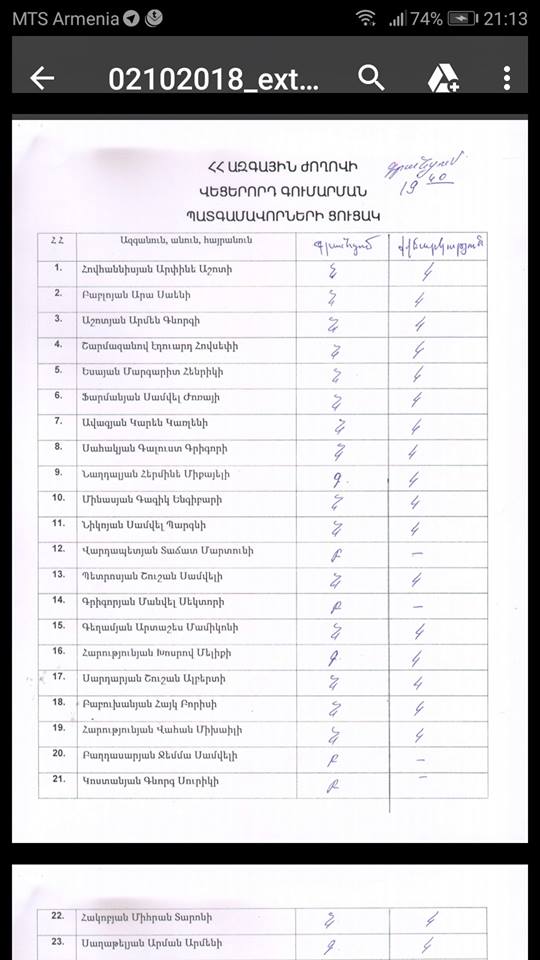 MTS Armenia 74% 21:13
02102018_ext...
ՀՀ ԱԶԳԱՅԻՆ ԺՈՂՈՎԻ գրանցում
ՎԵՑԵՐՈՐԴ ԳՈՒՄԱՐՄԱՆ 19 40
ՊԱՏԳԱՄԱՎՈՐՆԵՐԻ ՑՈՒՑԱԿ
Հ Հ Ազգանուն, անուն, հայրանուն գրանցում քվեարկություն
1. Հովհաննիսյան Արփինե Աշոտի Ն Կ
2. Բաբլոյան Արա Սաենի Ն Կ
3. Աշոտյան Արմեն Գևորգի Ն Կ
4. Շարմազանով Էդուարդ Հովսեփի Ն Կ
5. Եսայան Մարգարիտ Հենրիկի Ն Կ
6. Ֆարմանյան Սամվել Ժորայի Ն Կ
7. Ավագյան Կարեն Կառլենի Ն Կ
8. Սահակյան Գալուստ Գրիգորի Ն Կ
9. Նաղդալյան Հերմինե Միքայելի Գ Կ
10. Մինասյան Գագիկ Ենգիբարի Ն Կ
11. Նիկոյան Սամվել Պարգևի Ն Կ
12. Վարդապետյան Տաճատ Մարտունի Բ —
13. Պետրոսյան Շուշան Սամվելի Ն Կ
14. Գրիգորյան Մանվել Սեկտորի Բ —
15. Գեղամյան Արտաշես Մամիկոնի Ն Կ
16. Հարությունյան Խոսրով Մելիքի Գ Կ
17. Սարդարյան Շուշան Ալբերտի Ն Կ
18. Բաբուխանյան Հայկ Բորիսի Ն Կ
19. Հարությունյան Վահան Միխաիլի Ն Կ
20. Բաղդասարյան Ջեմմա Սամվելի Բ —
21. Կոստանյան Գևորգ Սուրիկի Բ —
22. Հակոբյան Միհրան Տարոնի Ն Կ
23. Սաղաթելյան Արման Արմենի Գ Կ